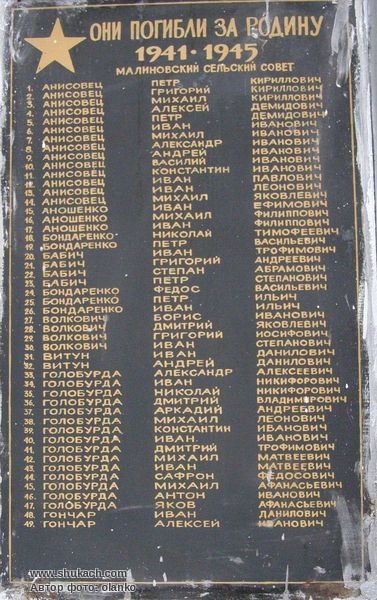 ОНИ ПОГИБЛИ ЗА РОДИНУ
1941 · 1945
МАЛИНОВСКИЙ СЕЛЬСКИЙ СОВЕТ
1. АНИСОВЕЦ ПЕТР КИРИЛЛОВИЧ
2. АНИСОВЕЦ ГРИГОРИЙ КИРИЛЛОВИЧ
3. АНИСОВЕЦ МИХАИЛ КИРИЛЛОВИЧ
4. АНИСОВЕЦ АЛЕКСЕЙ ДЕМИДОВИЧ
5. АНИСОВЕЦ ПЕТР ДЕМИДОВИЧ
6. АНИСОВЕЦ ИВАН ИВАНОВИЧ
7. АНИСОВЕЦ МИХАИЛ ИВАНОВИЧ
8. АНИСОВЕЦ АЛЕКСАНДР ИВАНОВИЧ
9. АНИСОВЕЦ АНДРЕЙ ИВАНОВИЧ
10. АНИСОВЕЦ ВАСИЛИЙ ИВАНОВИЧ
11. АНИСОВЕЦ КОНСТАНТИН ИВАНОВИЧ
12. АНИСОВЕЦ ИВАН ПАВЛОВИЧ
13. АНИСОВЕЦ ИВАН ЛЕОНОВИЧ
14. АНИСОВЕЦ МИХАИЛ ЯКОВЛЕВИЧ
15. АНОШЕНКО ИВАН ЕФИМОВИЧ
16. АНОШЕНКО МИХАИЛ ФИЛИППОВИЧ
17. АНОШЕНКО ИВАН ФИЛИППОВИЧ
18. БОНДАРЕНКО НИКОЛАЙ ТИМОФЕЕВИЧ
19. БОНДАРЕНКО ПЕТР ВАСИЛЬЕВИЧ
20. БАБИЧ ИВАН ТРОФИМОВИЧ
21. БАБИЧ ГРИГОРИЙ АНДРЕЕВИЧ
22. БАБИЧ СТЕПАН АБРАМОВИЧ
23. БАБИЧ ПЕТР СТЕПАНОВИЧ
24. БОНДАРЕНКО ФЕДОС ВАСИЛЬЕВИЧ
25. БОНДАРЕНКО ПЕТР ИЛЬИЧ
26. БОНДАРЕНКО ИВАН ИЛЬИЧ
27. ВОЛКОВИЧ БОРИС ИВАНОВИЧ
28. ВОЛКОВИЧ ДМИТРИЙ ЯКОВЛЕВИЧ
29. ВОЛКОВИЧ ГРИГОРИЙ ИОСИФОВИЧ
30. ВОЛКОВИЧ ИВАН СТЕПАНОВИЧ
31. ВИТУН ИВАН ДАНИЛОВИЧ
32. ВИТУН АНДРЕЙ ДАНИЛОВИЧ
33. ГОЛОБУРДА АЛЕКСАНДР АЛЕКСЕЕВИЧ
34. ГОЛОБУРДА ИВАН НИКИФОРОВИЧ
35. ГОЛОБУРДА НИКОЛАЙ НИКИФОРОВИЧ
36. ГОЛОБУРДА ДМИТРИЙ ВЛАДИМИРОВИЧ
37. ГОЛОБУРДА АРКАДИЙ АНДРЕЕВИЧ
38. ГОЛОБУРДА МИХАИЛ ЛЕОНОВИЧ
39. ГОЛОБУРДА КОНСТАНТИН ИВАНОВИЧ
40. ГОЛОБУРДА ИВАН ИВАНОВИЧ
41. ГОЛОБУРДА ДМИТРИЙ ТРОФИМОВИЧ
42. ГОЛОБУРДА МИХАИЛ МАТВЕЕВИЧ
43. ГОЛОБУРДА ИВАН МАТВЕЕВИЧ
44. ГОЛОБУРДА САФРОН ФЕДОСОВИЧ
45. ГОЛОБУРДА МИХАИЛ АФАНАСЬЕВИЧ
46. ГОЛОБУРДА АНТОН ИВАНОВИЧ
47. ГОЛОБУРДА ЯКОВ АФАНАСЬЕВИЧ
48. ГОНЧАР ИВАН ДАНИЛОВИЧ
49. ГОНЧАР АЛЕКСЕЙ ИВАНОВИЧ
www.shukach.com
Автор фото: olanko